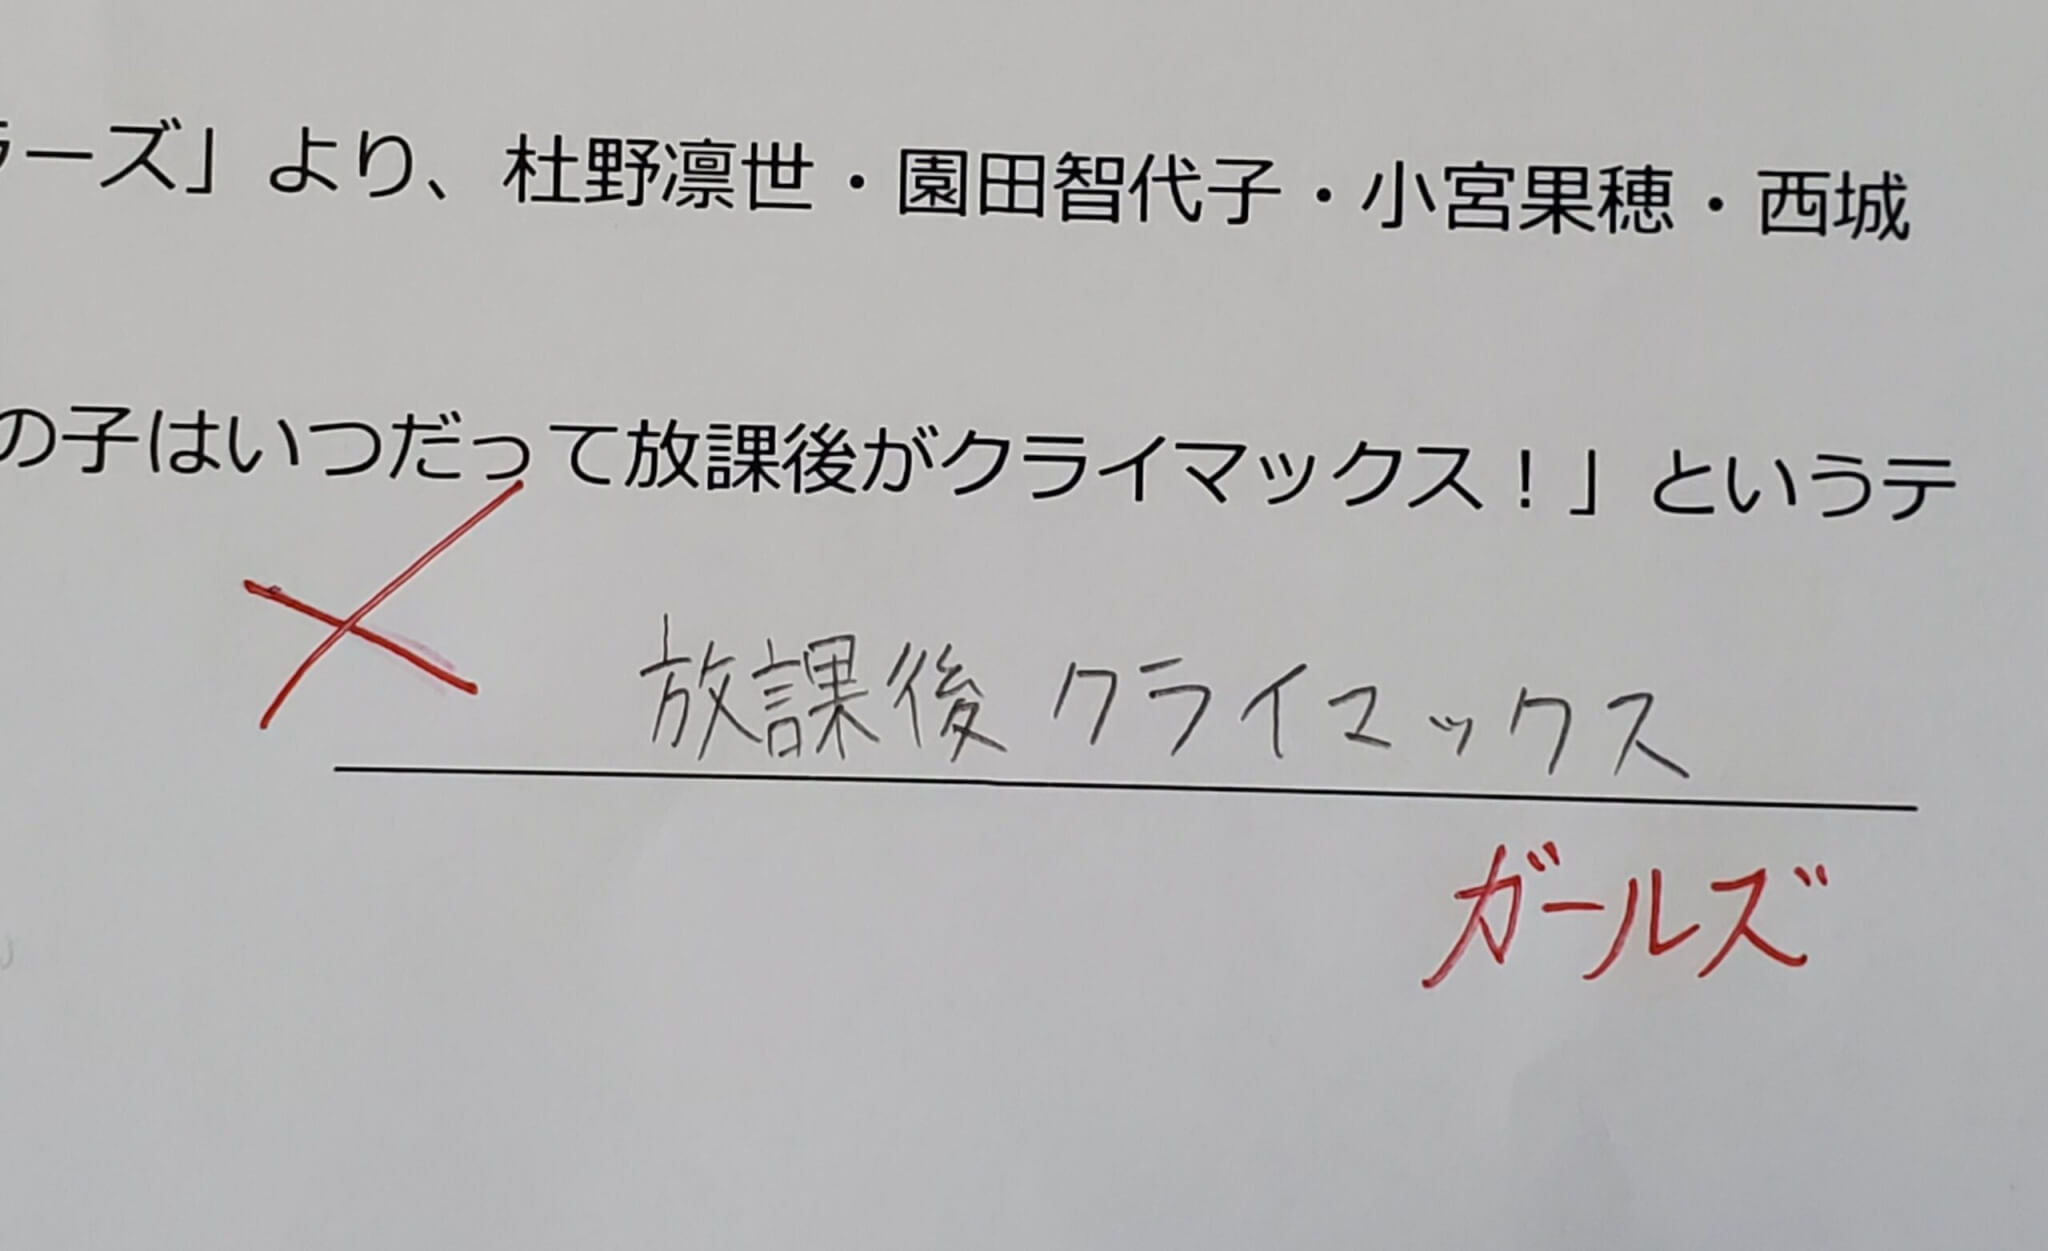 ラーズ」より、杜野凛世・園田智代子・小宮果穂・西城
の子はいつだって放課後がクライマックス！」というテ
放課後クライマックス
ガールズ